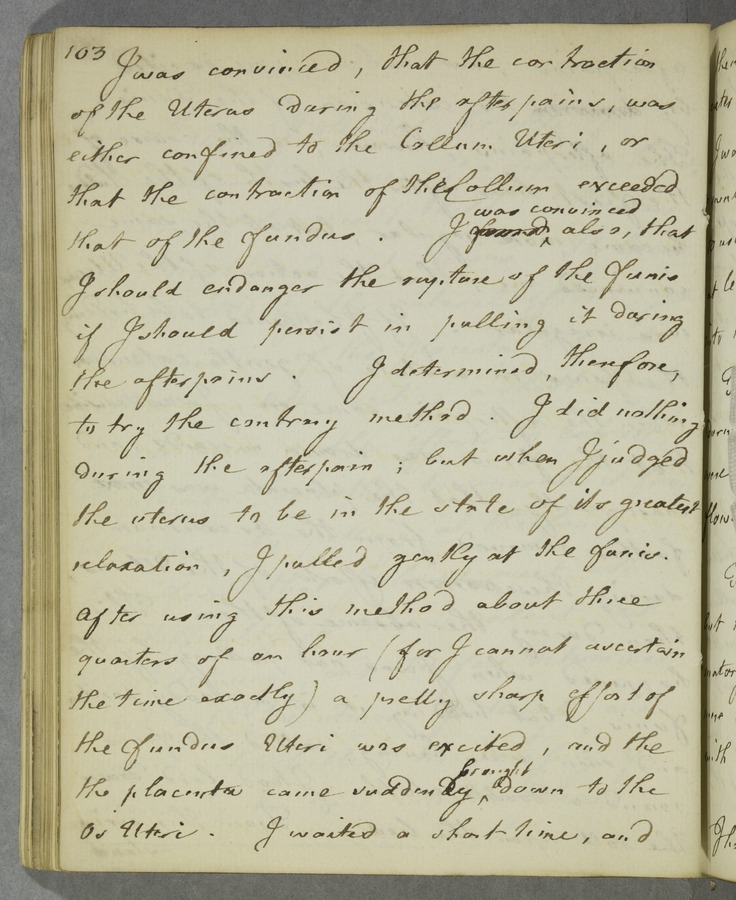 103
I was convinced, that the contraction
of the Uterus during the afterpains, was
either confined to the Collum Uteri, or
that the contraction of the Collum exceeded
that of the fundus. I found was convinced also, that
I should endanger the rupture of the funis
if I should persist in pulling it during
the afterpains. I determined, therefore,
to try the contrary method. I did nothing
during the afterpain; but when I judged
the uterus to be in the state of its greatest
relaxation, I pulled gently at the funis.
After using this method about three
quarters of an hour (for I cannot ascertain
the time exactly) a pretty sharp effort of
the fundus Uteri was excited, and the
the placenta came suddenly brought down to the
Os Uteri. I waited a short time, and